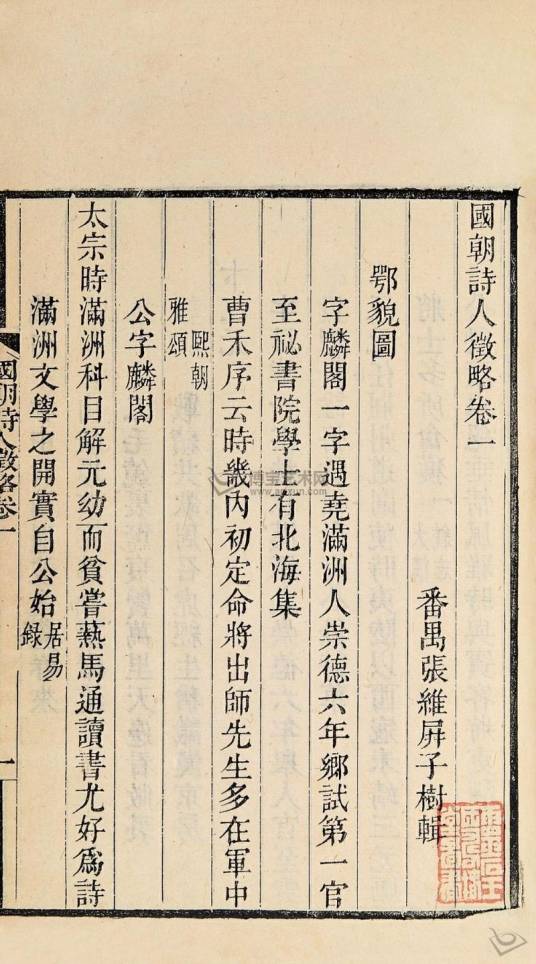 國朝詩人徵略卷一
番禺張維屏子樹輯
鄂貌圖
字麟閣一字遇堯滿洲人崇德六年鄉試第一官
至祕書院學士有北海集
曹禾序云時畿內初定命將出師先生多在軍中
熙朝
雅頌
公字麟閣
太宗時滿洲科目解元幼而貧嘗爇馬通讀書尤好爲詩
滿洲文學之開實自公始居易
錄
國朝詩人徵略卷一
一